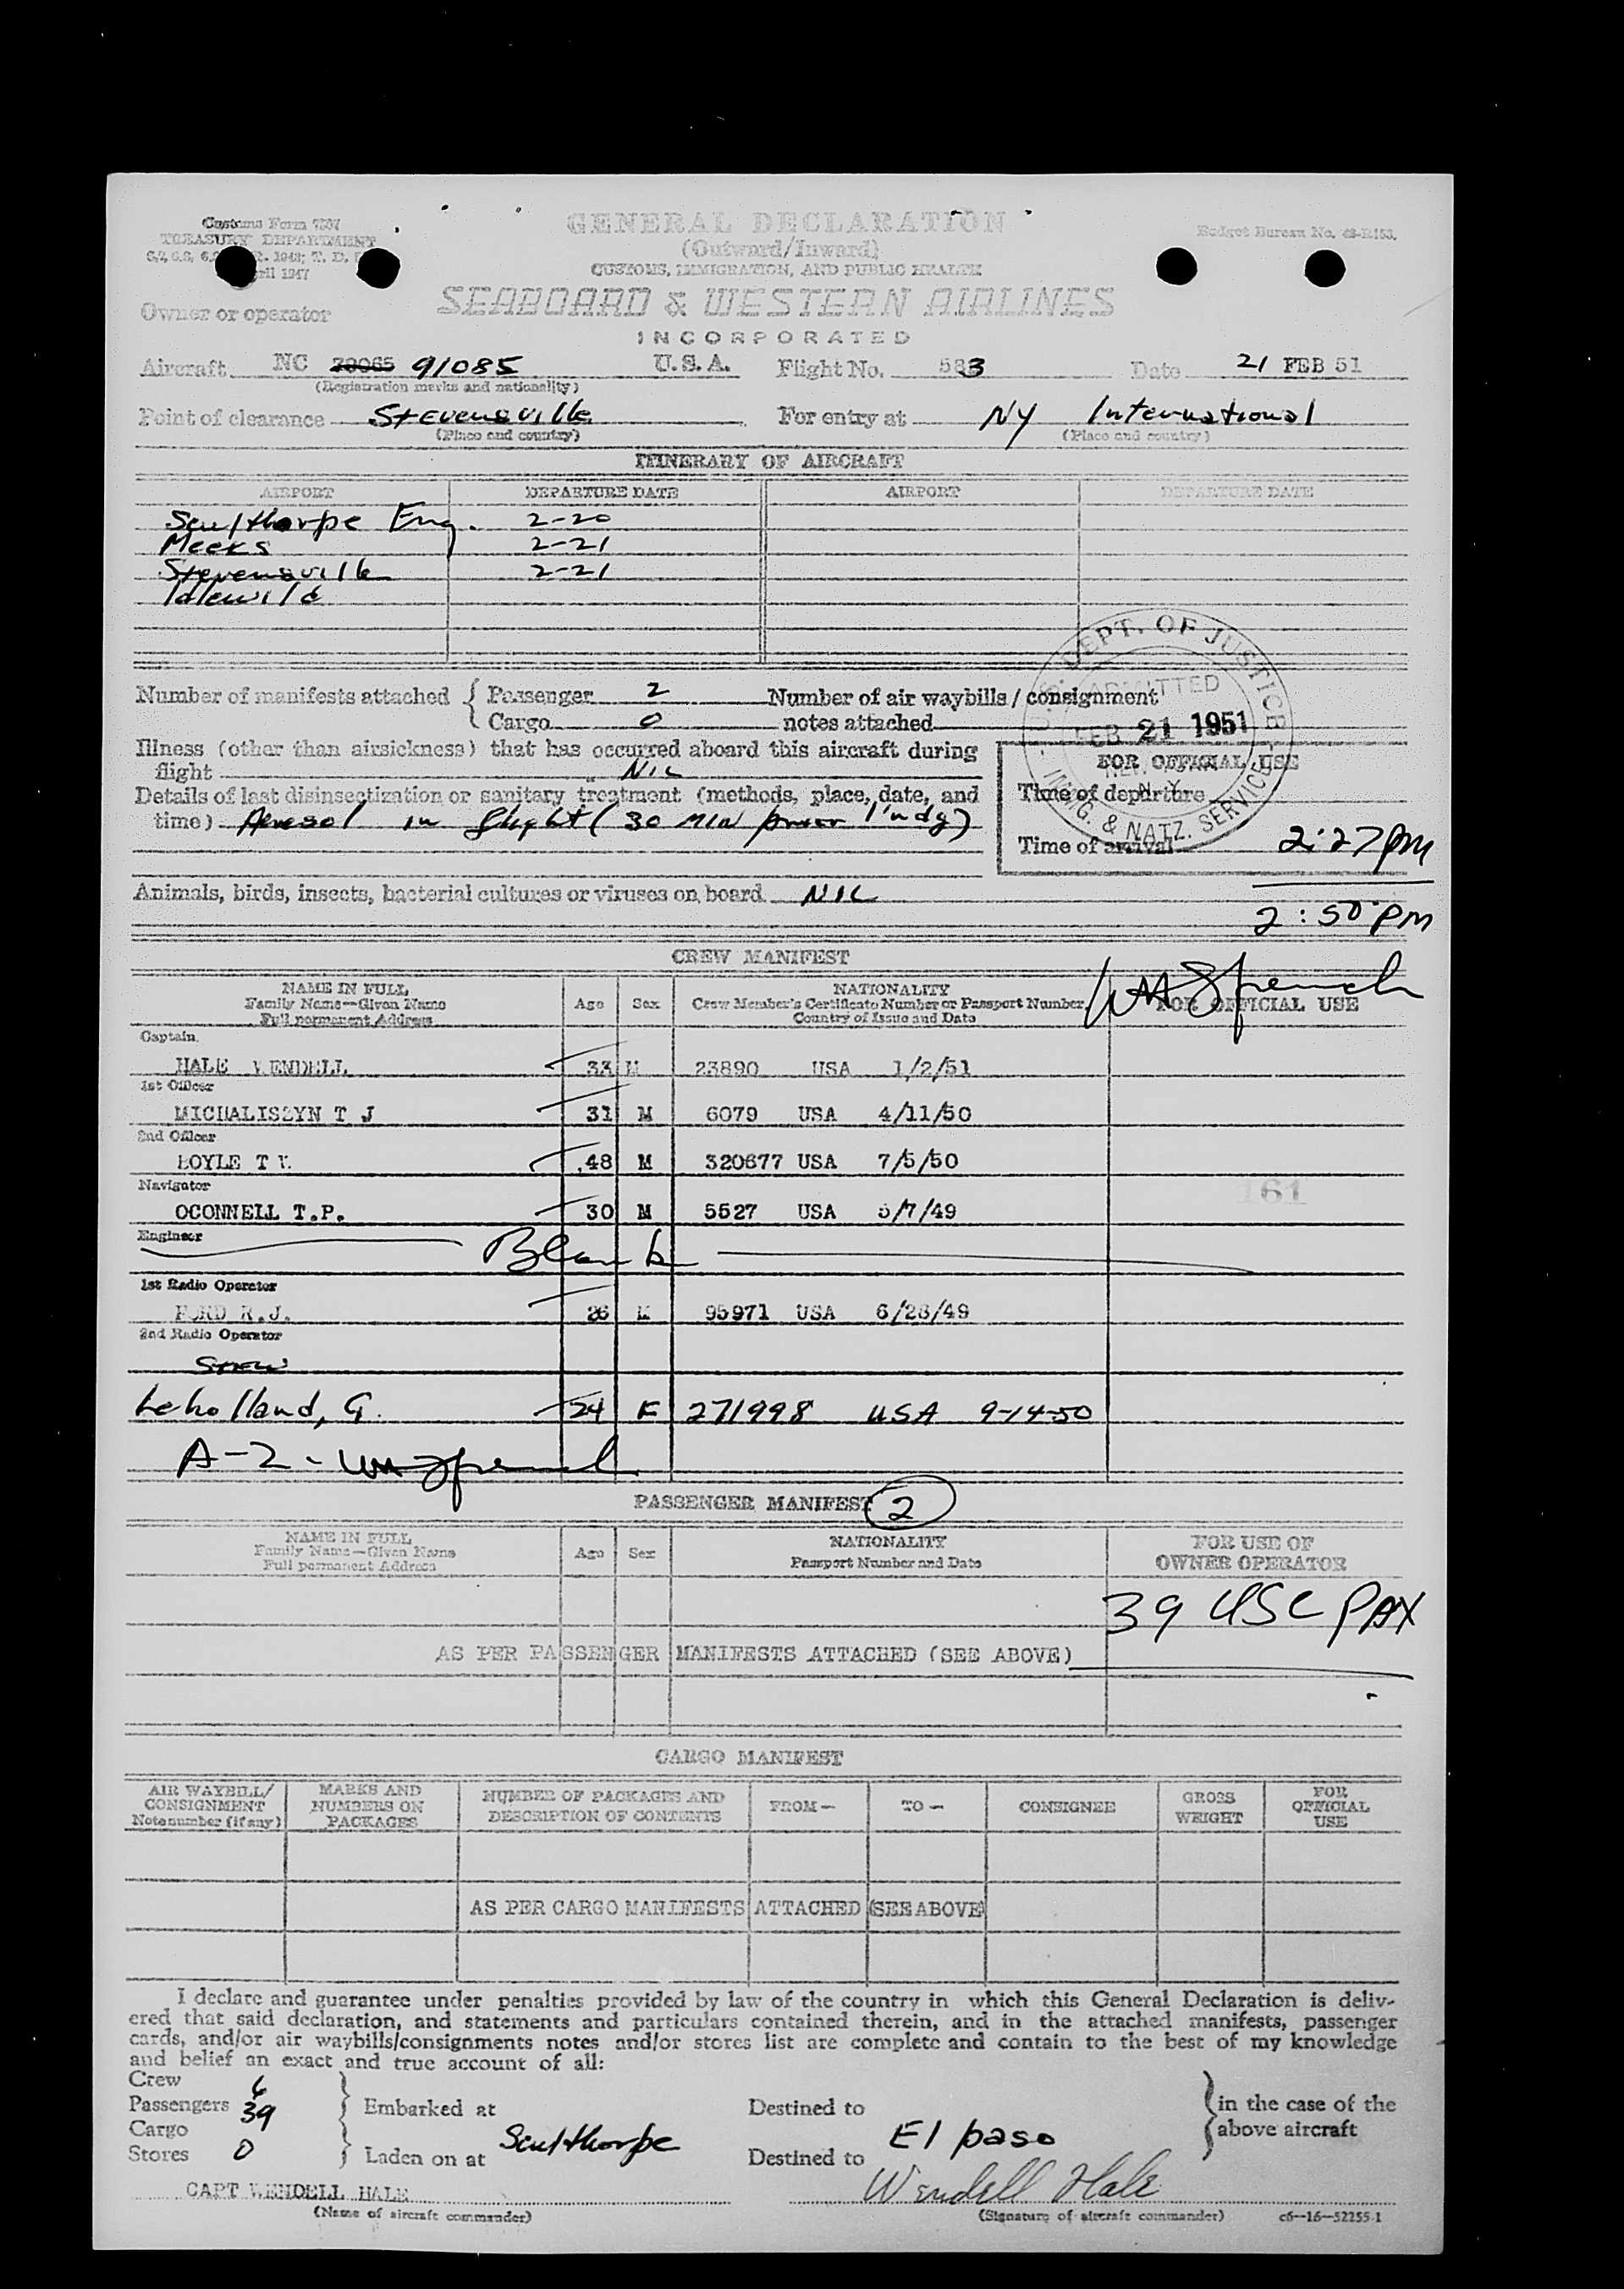 Customs Form 7507
TREASURY DEPARTMENT
April 1947
Budget Bureau No. 48-R153.
GENERAL DECLARATION
(Outward/Inward)
CUSTOMS, IMMIGRATION, AND PUBLIC HEALTH
Owner or operator SEABOARD & WESTERN AIRLINES
INCORPORATED
Aircraft NC 39065 91085 U.S.A. Flight No. 583 Date 21 FEB 51
(Registration marks and nationality)
Point of clearance Stevensville For entry at NY International
(Place and country) (Place and country)
ITINERARY OF AIRCRAFT
AIRPORT DEPARTURE DATE AIRPORT DEPARTURE DATE
Sculthorpe Eng. 2-20
Meeks 2-21
Stevensville 2-21
Idlewild
Number of manifests attached { Passenger 2 Number of air waybills / consignment
Cargo 0 notes attached
U.S. DEPT. OF JUSTICE
ADMITTED
FEB 21 1951
N. Y.
IMMIG. & NATZ. SERVICE
Illness (other than airsickness) that has occurred aboard this aircraft during
flight NIL
FOR OFFICIAL USE
Details of last disinsectization or sanitary treatment (methods, place, date, and
time) Aerosol in flight (30 MIN prior l'ndg)
Time of departure
Time of arrival 2:27 pm
Animals, birds, insects, bacterial cultures or viruses on board NIL
2:50 pm
CREW MANIFEST
NAME IN FULL
Family Name—Given Name
Full permanent Address
Age Sex
NATIONALITY
Crew Member's Certificate Number or Passport Number
Country of Issue and Date
FOR OFFICIAL USE
Captain
HALE WENDELL 33 M 23890 USA 1/2/51
1st Officer
MICHALISZYN T J 31 M 6079 USA 4/11/50
2nd Officer
BOYLE T W 48 M 320677 USA 7/5/50
Navigator
OCONNELL T.P. 30 M 5527 USA 5/7/49
161
Engineer Blank
1st Radio Operator
FORD R.J. 26 M 95971 USA 6/28/49
2nd Radio Operator
Stew
Leholland, G. 24 F 271998 USA 9-14-50
A-2 -
PASSENGER MANIFEST 2
NAME IN FULL
Family Name—Given Name
Full permanent Address
Age Sex
NATIONALITY
Passport Number and Date
FOR USE OF
OWNER OPERATOR
39 USC PAX
AS PER PASSENGER MANIFESTS ATTACHED (SEE ABOVE)
CARGO MANIFEST
AIR WAYBILL/
CONSIGNMENT
Note number (if any)
MARKS AND
NUMBERS ON
PACKAGES
NUMBER OF PACKAGES AND
DESCRIPTION OF CONTENTS
FROM— TO— CONSIGNEE
GROSS
WEIGHT
FOR
OFFICIAL
USE
AS PER CARGO MANIFESTS ATTACHED (SEE ABOVE)
I declare and guarantee under penalties provided by law of the country in which this General Declaration is deliv-
ered that said declaration, and statements and particulars contained therein, and in the attached manifests, passenger
cards, and/or air waybills/consignments notes and/or stores list are complete and contain to the best of my knowledge
and belief an exact and true account of all:
Crew 6
Passengers 39 Embarked at Destined to in the case of the
Cargo Sculthorpe El paso above aircraft
Stores 0 Laden on at Destined to
CAPT WENDELL HALE Wendell Hale
(Name of aircraft commander) (Signature of aircraft commander) c6—16—52255-1